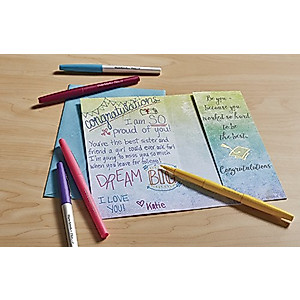 congratulations
I am SO
proud of you!
You're the best sister and
friend a girl could ever ask for!
I'm going to miss you so much
when you leave for college!
DREAM BIG
I LOVE
YOU!
Katie
Be you,
because you
worked so hard
to be
the best.
Congratulations